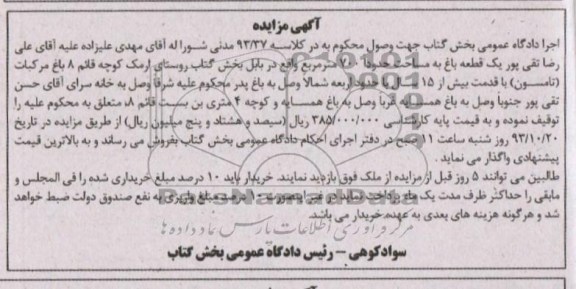 آگهی مزایده
اجرا دادگاه عمومی بخش گتاب جهت وصول محکوم به در کلاسه ۹۳/۳۷ مدنی شورا له آقای مهدی علیزاده علیه آقای علی
رضا تقی پور یک قطعه باغ به مساحت حدود ۷۰۰ مترمربع واقع در بابل بخش گتاب روستای ارمک کوچه قائم ۸ باغ مرکبات
(تامسون) با قدمت بیش از ۱۵ سال با حدود اربعه شمالا وصل به باغ پدر محکوم علیه شرقا وصل به خانه سرای آقای حسن
تقی پور جنوبا وصل به باغ همسایه غربا وصل به باغ همسایه و کوچه ۴ متری بن بست قائم ۸، متعلق به محکوم علیه را
توقیف نموده و به قیمت پایه کارشناسی ۳۸۵/۰۰۰/۰۰۰ ریال (سیصد و هشتاد و پنج میلیون ریال) از طریق مزایده در تاریخ
۹۳/۱۰/۲۰ روز شنبه ساعت ۱۱ صبح در دفتر اجرای احکام دادگاه عمومی بخش گتاب بفروش می رساند و به بالاترین قیمت
پیشنهادی واگذار می نماید.
طالبین می توانند ۵ روز قبل از مزایده از ملک فوق بازدید نمایند. خریدار باید ۱۰ درصد مبلغ خریداری شده را فی المجلس و
مابقی را حداکثر ظرف مدت یک ماه پرداخت نماید در غیر اینصورت ۱۰ درصد مبلغ واریزی به نفع صندوق دولت ضبط خواهد
شد و هرگونه هزینه های بعدی به عهده خریدار می باشد.
سوادکوهی – رئیس دادگاه عمومی بخش گتاب